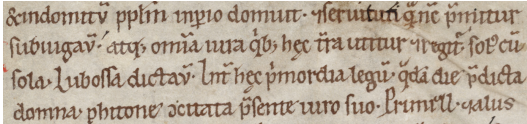 & indomitū pp̄lm̄ inp̄io domuit. ⁊ seruituti q̄ nc̄ p̄mitur
subiugauͭ. atq; om̄ia iura q̄b; hęc t̄ra utitur ⁊ regit̄ sol' cū
sola Lubossa dictauͭ. Int̄ hęc p̄mordia legū q̄dā die p̄dicta
domna phitone ↄcitata p̄sente uiro suo Primizl. ⁊ alus